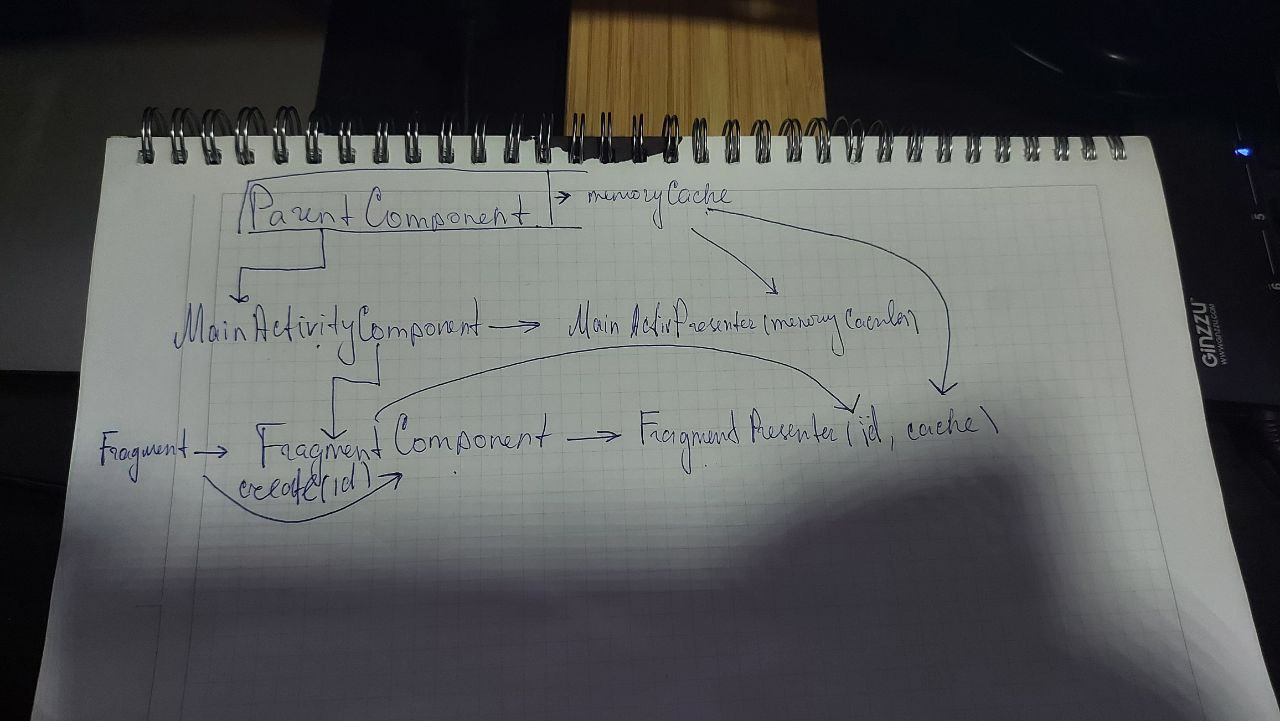 Parent Component → memoryCache
MainActivityComponent → Main ActivPresenter (memory
Fragment → Fragment Component → Fragment Presenter (id, cache)
create(id)
GINZZU
WWW.GINZZU.COM
5
6